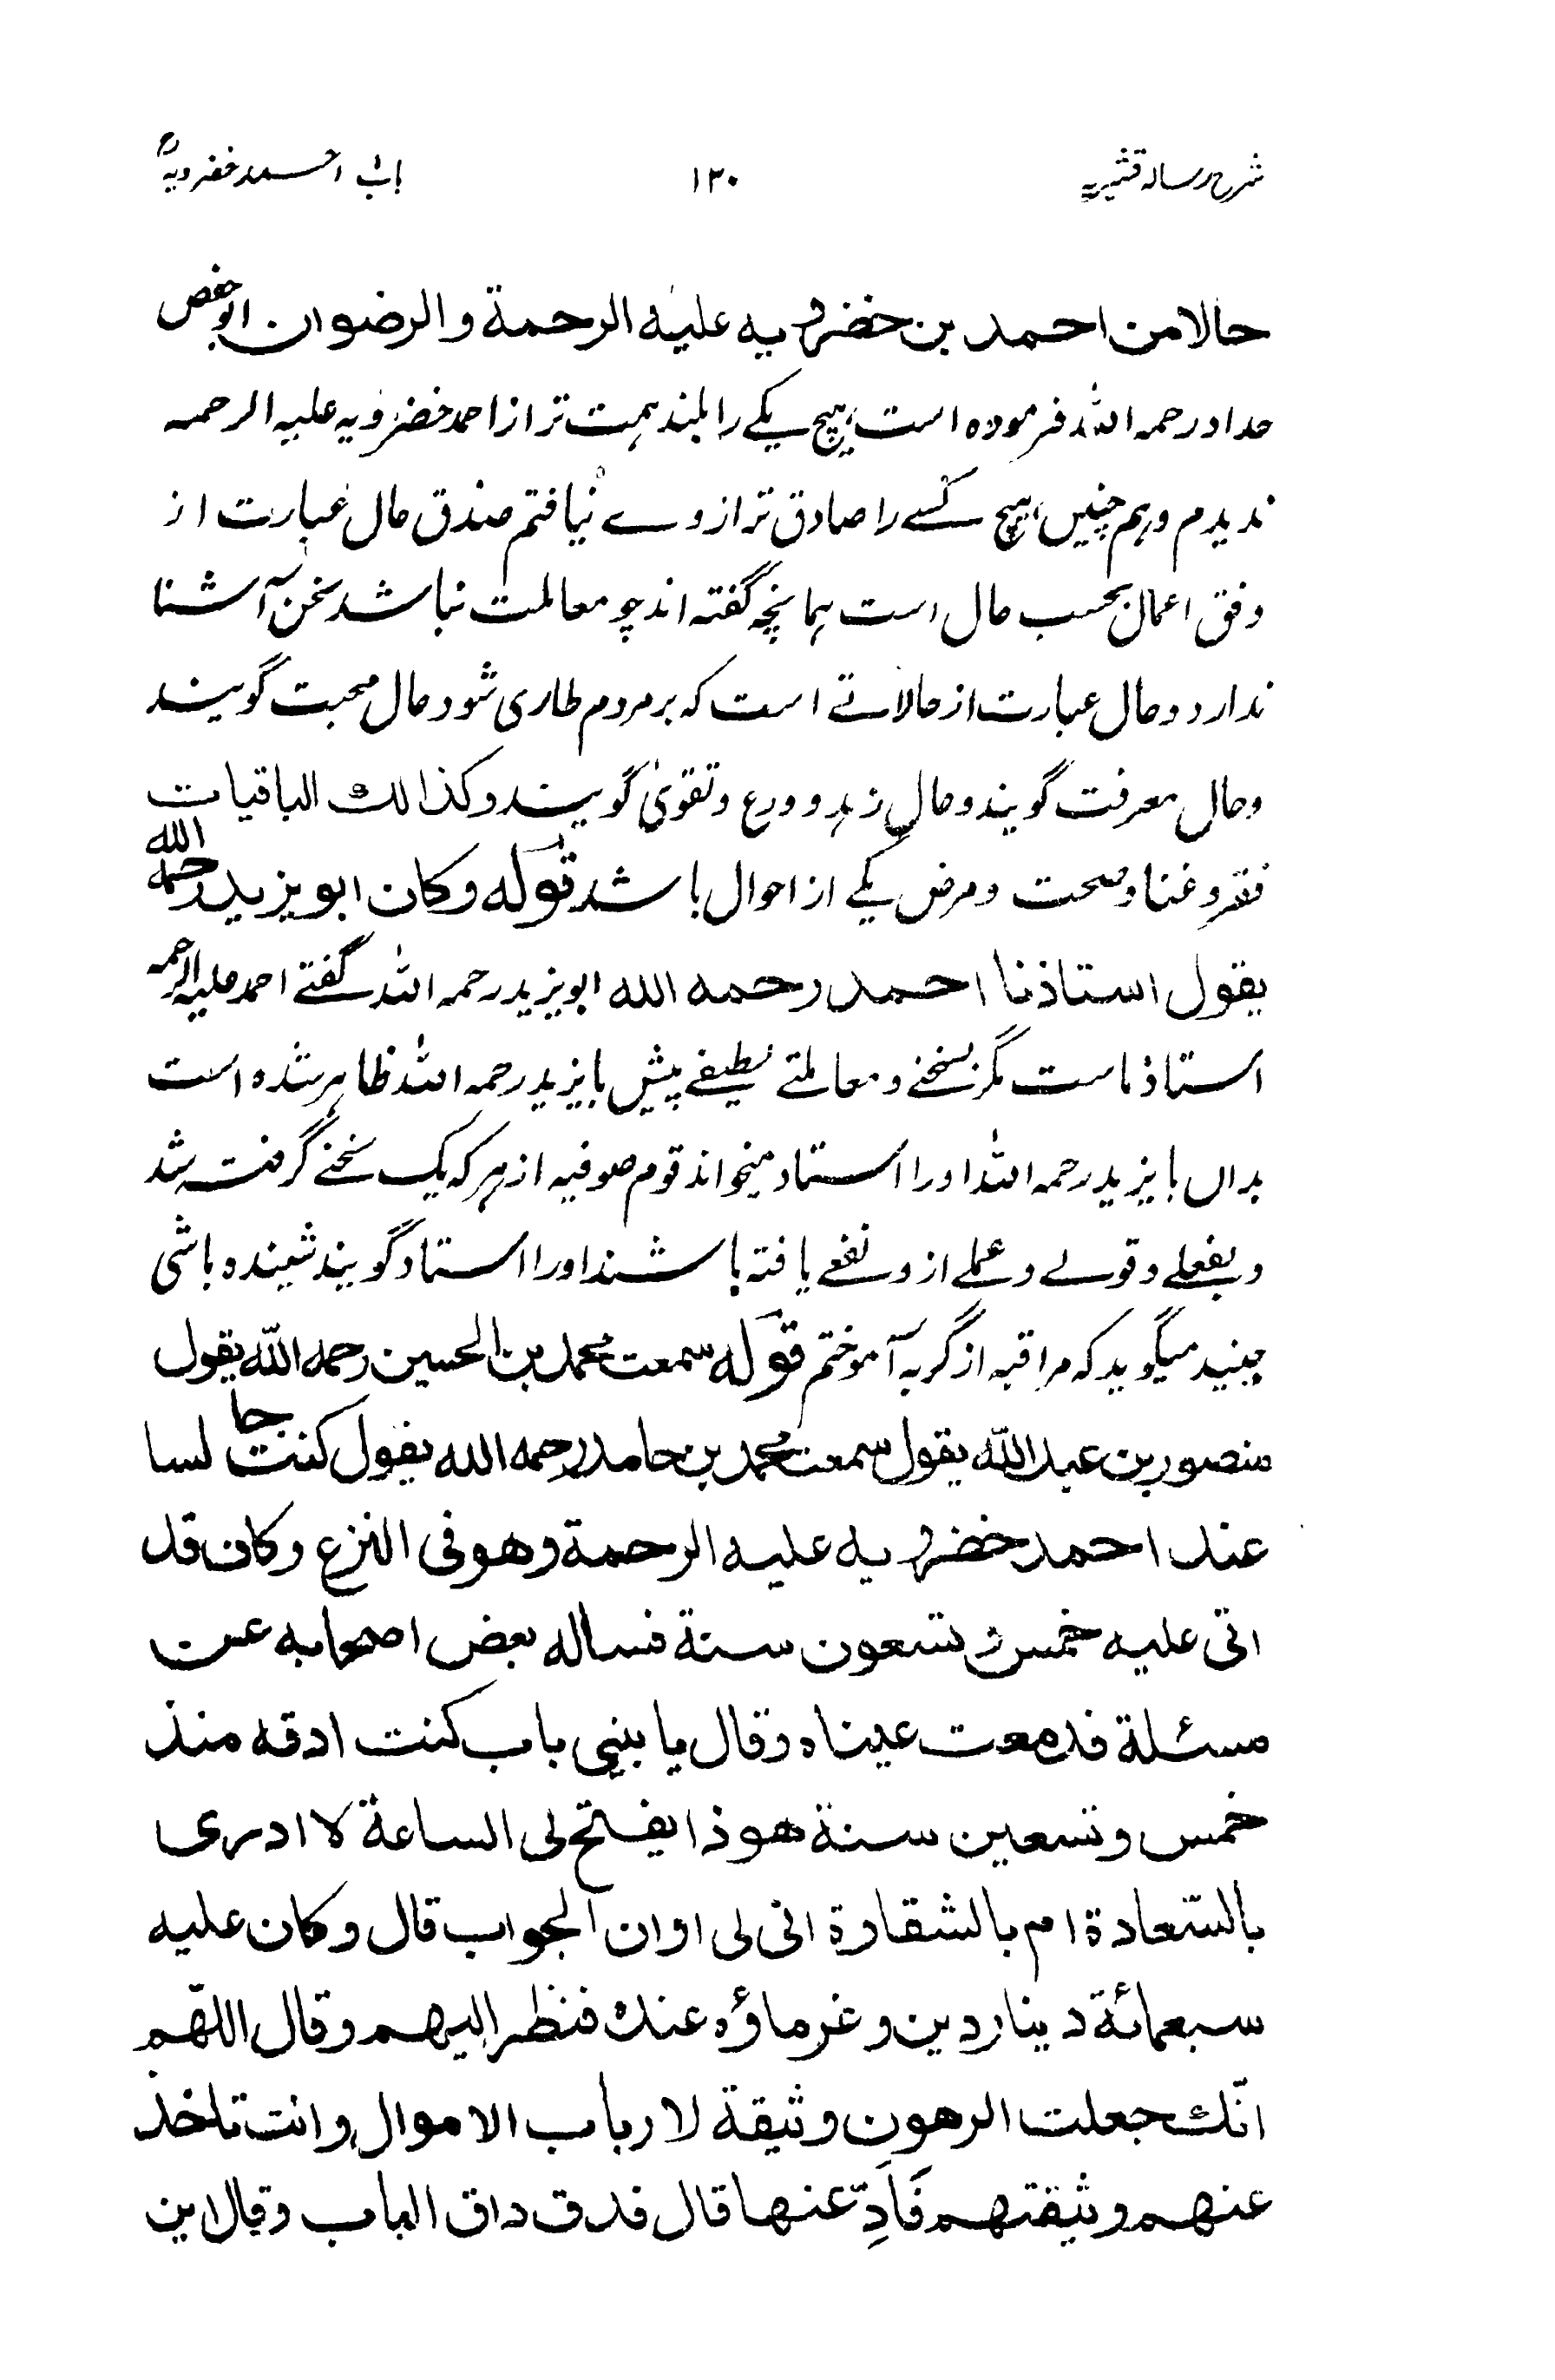 شرح رساله قشیریه ۱۳۰ باب احمد خضرویہؒ
حالا من احمد بن خضرویه علیه الرحمة والرضوان ابوحفص
حداد رحمہ اللہ فرمودہ است ہیچ یکے را بلند ہمت تر از احمد خضرویہ علیہ الرحمہ
ندیدم و ہم چنیں ہیچ کسے را صادق تر از وے نیافتم صدق حال عبارت از
وفق اعمال بحسب حال است ہمانچہ گفتہ اند چو معاملت نباشد سخن آشنا
ندارد و حال عبارت از حالاتے است کہ بر مردم طاری شود حال محبت گویند
و حال معرفت گویند و حال زہد و ورع و تقویٰ گویند و کذالك الباقیات
فقر و غنا و صحت و مرض یکے از احوال باشد قوله وکان ابو یزید رحمه الله
یقول استاذنا احمد رحمه الله ابویزید رحمہ اللہ گفتے احمد علیہ الرحمہ
استاذ ماست مگر سخنے و معاملتے لطیفے پیش بایزید رحمہ اللہ ظاہر شدہ است
بداں بایزید رحمہ اللہ اورا استاد میخواند قوم صوفیہ از ہر کہ یک سخنے گرفتہ شد
و بفعلے و قولے و عملے ازو نفعے یافتہ باشند اورا استاد گویند شنیدہ باشی
جنید میگوید کہ مراقبہ از گربہ آموختم قوله سمعت محمد بن الحسین رحمه الله یقول
منصور بن عبد الله یقول سمعت محمد بن حامد رحمه الله یقول کنت جالسا
عند احمد خضرویه علیه الرحمة وهو فی النزع وکان قد
اتی علیه خمس و تسعون سنة فساله بعض اصحابه عن
مسئلة فدمعت عیناه وقال یا بنی باب کنت ادقه منذ
خمس وتسعین سنة هو ذا یفتح لی الساعة لا ادری
بالسّعادة ام بالشقاوة انی لی اوان الجواب قال وکان علیه
سبعمائة دینار دین وغرماؤه عنده فنظر الیهم وقال اللّهم
انّك جعلت الرهون وثیقة لارباب الاموال وانت تاخذ
عنهم وثیقتهم فَاَدِّ عنها قال فدق داق الباب وقال این